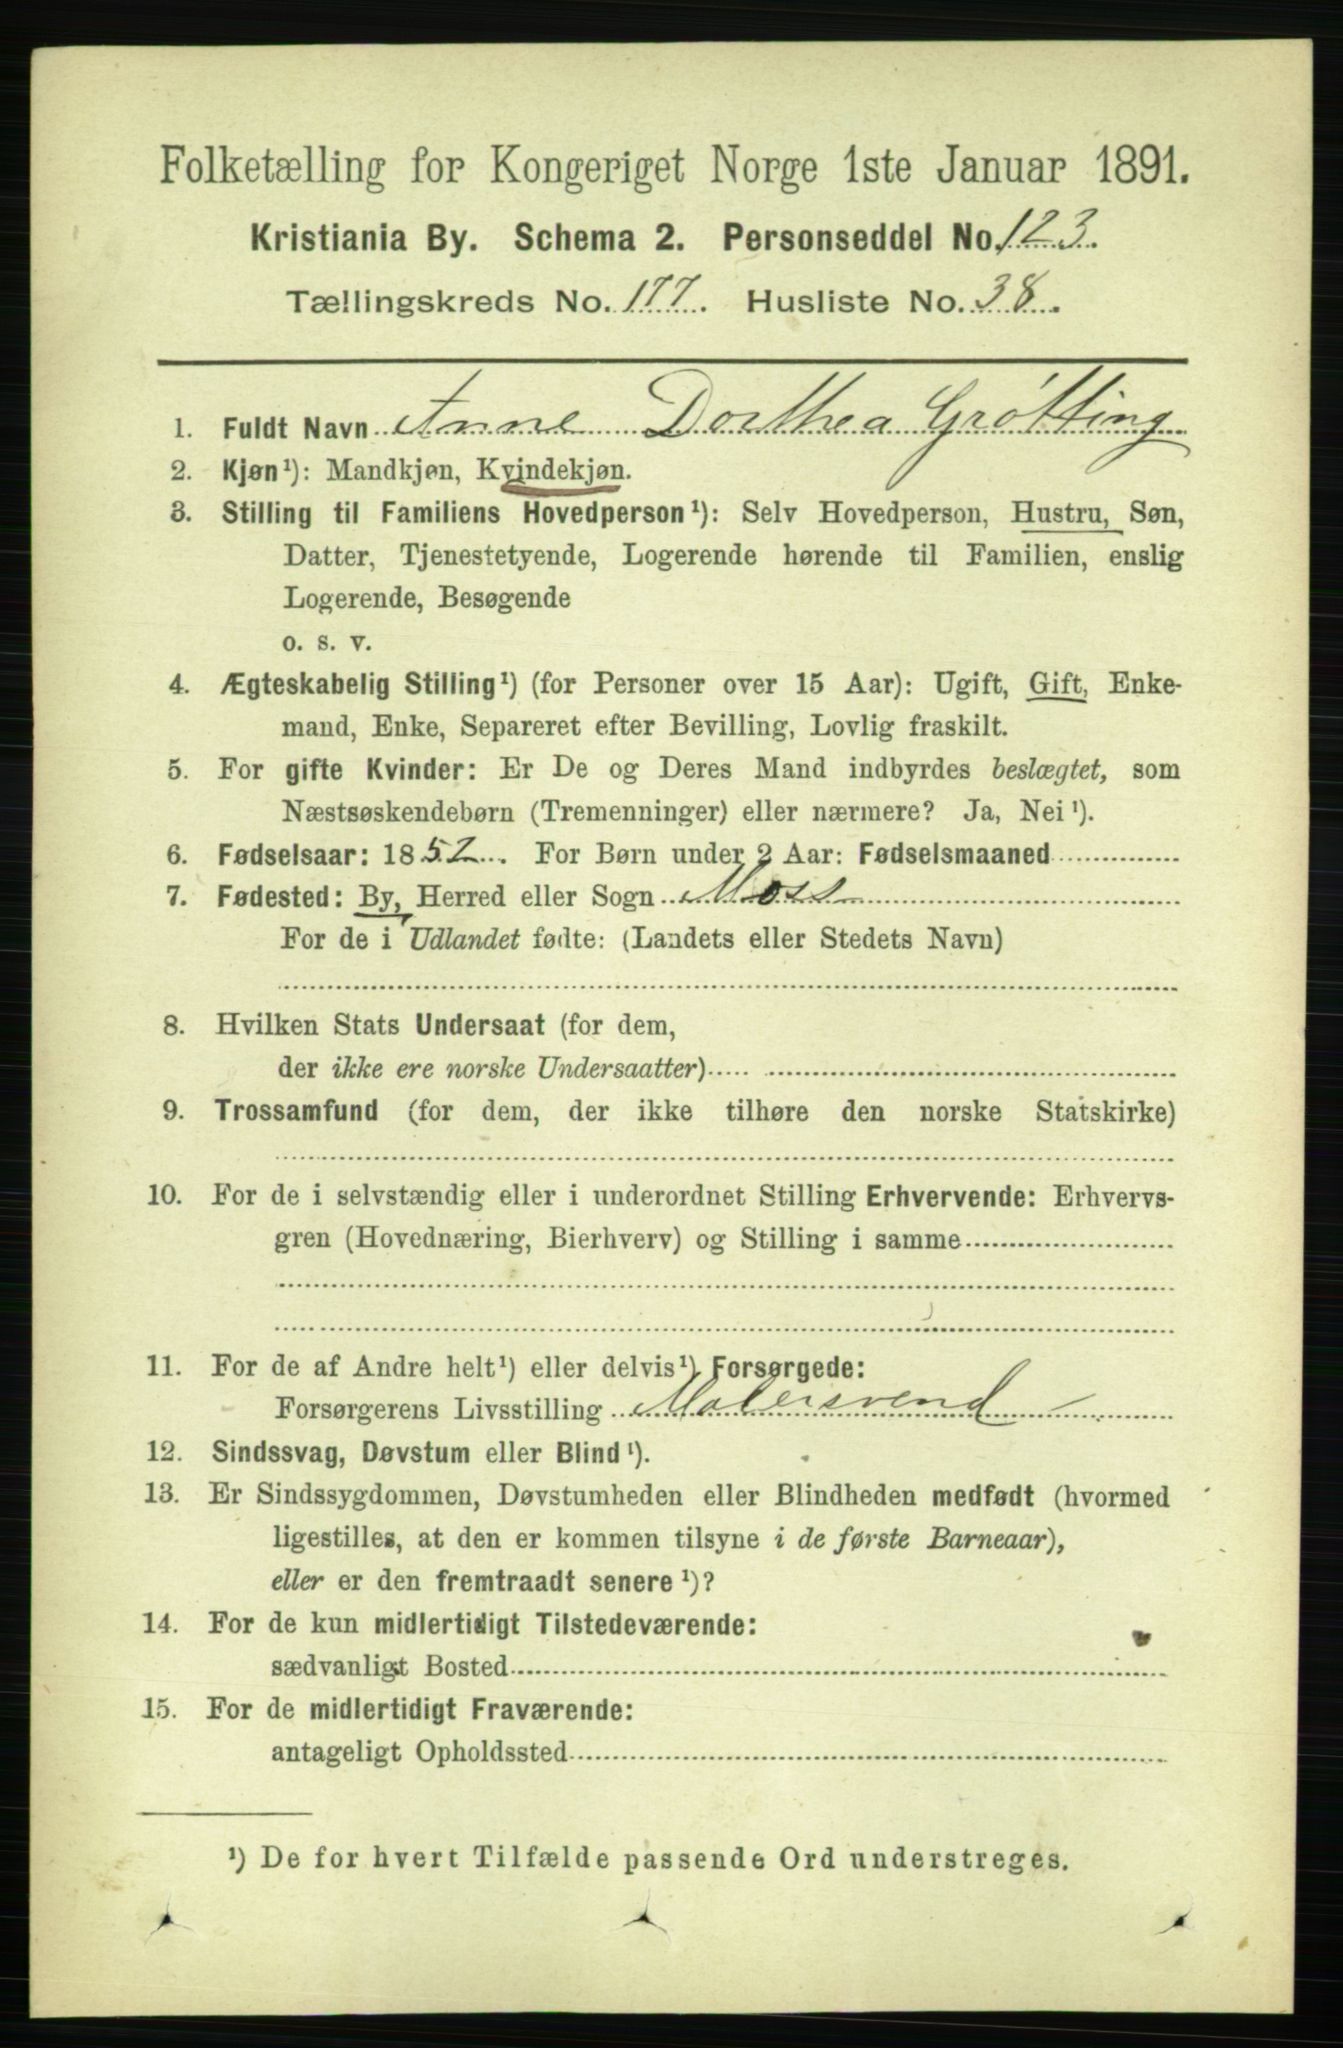 Folketælling for Kongeriget Norge 1ste Januar 1891.
Kristiania By. Schema 2. Personseddel No. 123.
Tællingskreds No. 177. Husliste No. 38.
1. Fuldt Navn Anne Dorthea Grótting
2. Kjøn¹): Mandkjøn, Kvindekjøn.
3. Stilling til Familiens Hovedperson¹): Selv Hovedperson, Hustru, Søn,
Datter, Tjenestetyende, Logerende hørende til Familien, enslig
Logerende, Besøgende
o. s. v.
4. Ægteskabelig Stilling¹) (for Personer over 15 Aar): Ugift, Gift, Enke-
mand, Enke, Separeret efter Bevilling, Lovlig fraskilt.
5. For gifte Kvinder: Er De og Deres Mand indbyrdes beslægtet, som
Næstsøskendebørn (Tremenninger) eller nærmere? Ja, Nei¹).
6. Fødselsaar: 1852. For Børn under 2 Aar: Fødselsmaaned
7. Fødested: By, Herred eller Sogn Moss
For de i Udlandet fødte: (Landets eller Stedets Navn)
8. Hvilken Stats Undersaat (for dem,
der ikke ere norske Undersaatter)
9. Trossamfund (for dem, der ikke tilhøre den norske Statskirke)
10. For de i selvstændig eller i underordnet Stilling Erhvervende: Erhvervs-
gren (Hovednæring, Bierhverv) og Stilling i samme
11. For de af Andre helt¹) eller delvis¹) Forsørgede:
Forsørgerens Livsstilling Malersvend
12. Sindssvag, Døvstum eller Blind¹).
13. Er Sindssygdommen, Døvstumheden eller Blindheden medfødt (hvormed
ligestilles, at den er kommen tilsyne i de første Barneaar),
eller er den fremtraadt senere¹)?
14. For de kun midlertidigt Tilstedeværende:
sædvanligt Bosted
15. For de midlertidigt Fraværende:
antageligt Opholdssted
¹) De for hvert Tilfælde passende Ord understreges.